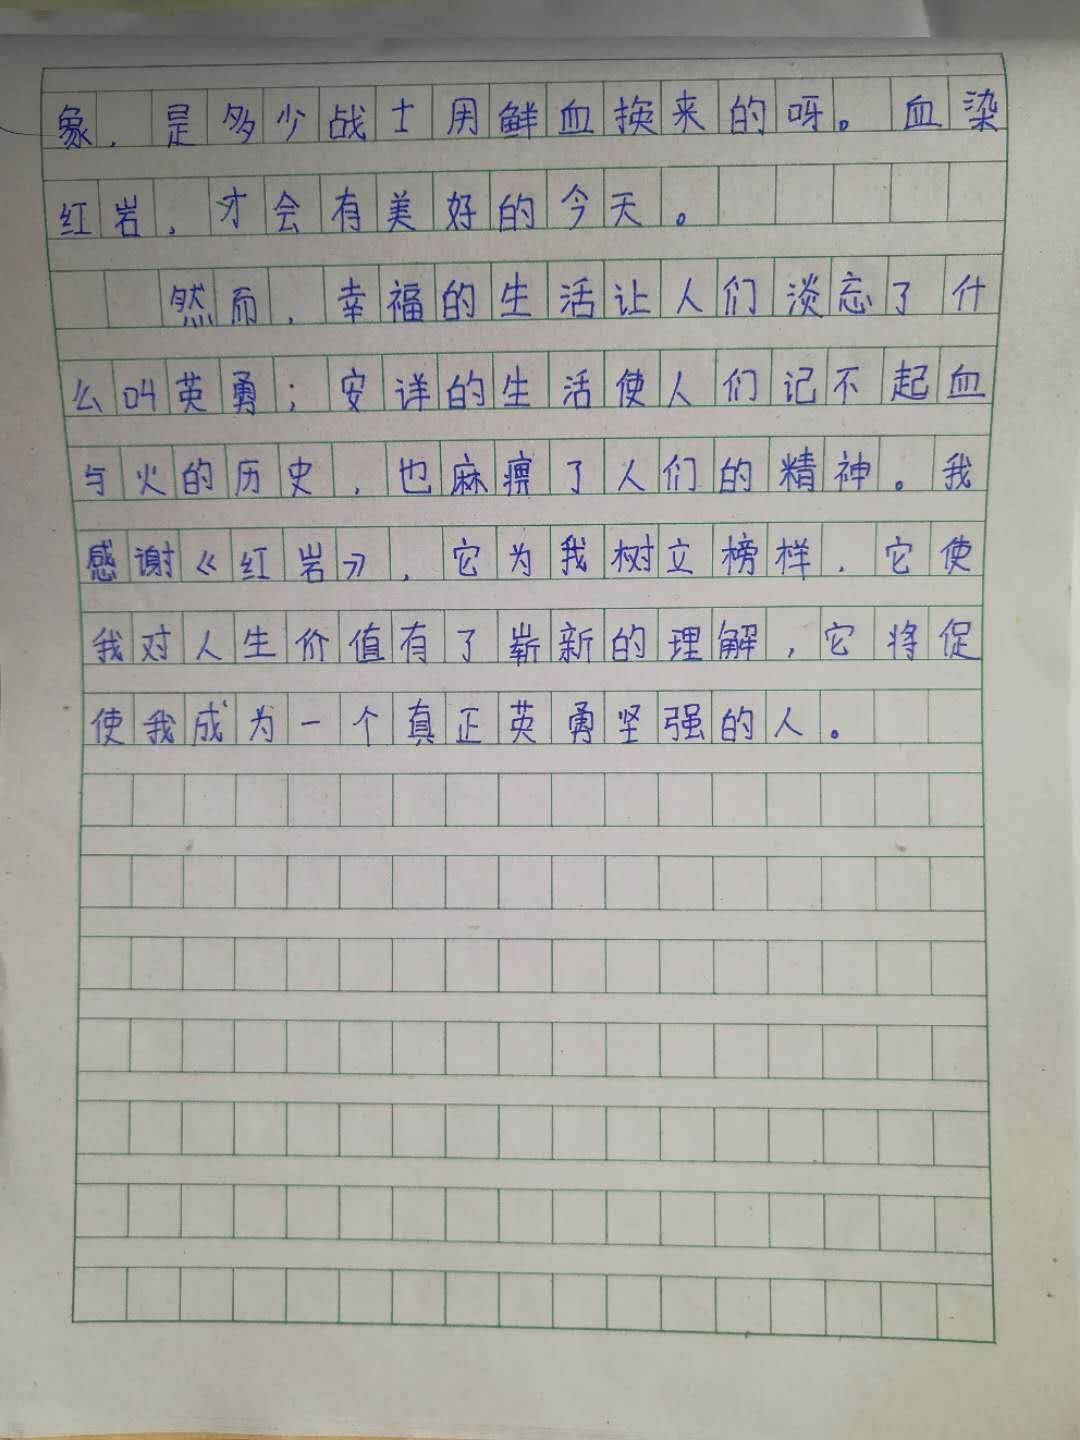 象，是多少战士用鲜血换来的呀。血染
红岩，才会有美好的今天。
然而，幸福的生活让人们淡忘了什
么叫英勇；安详的生活使人们记不起血
与火的历史，也麻痹了人们的精神。我
感谢《红岩》，它为我树立榜样，它使
我对人生价值有了崭新的理解，它将促
使我成为一个真正英勇坚强的人。